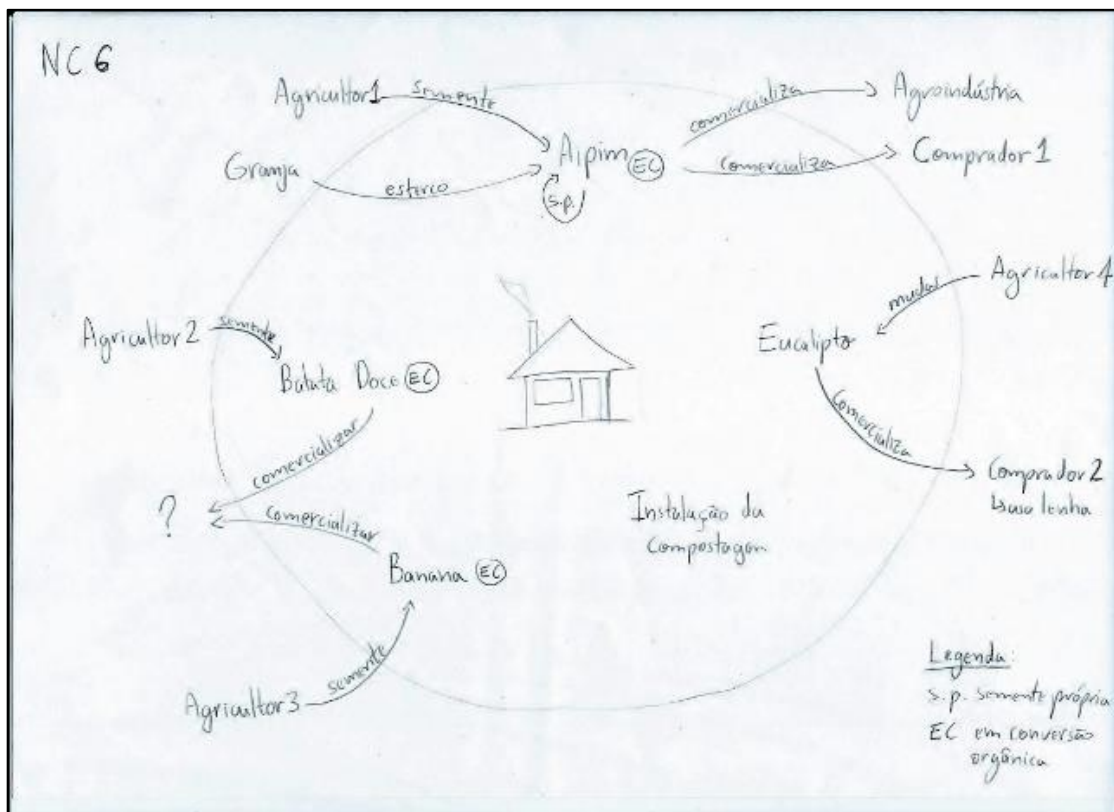 NC 6
Agricultor 1
semente
Aipim EC
s.p.
comercializa
Agroindústria
comercializa
Comprador 1
Granja
esterco
Agricultor 4
mudas
Eucalipto
comercializa
Comprador 2
↳ uso lenha
Agricultor 2
semente
Batata Doce EC
comercializar
?
comercializar
Banana EC
semente
Agricultor 3
Instalação da
compostagem
Legenda:
s.p. semente própria
EC em conversão
orgânica